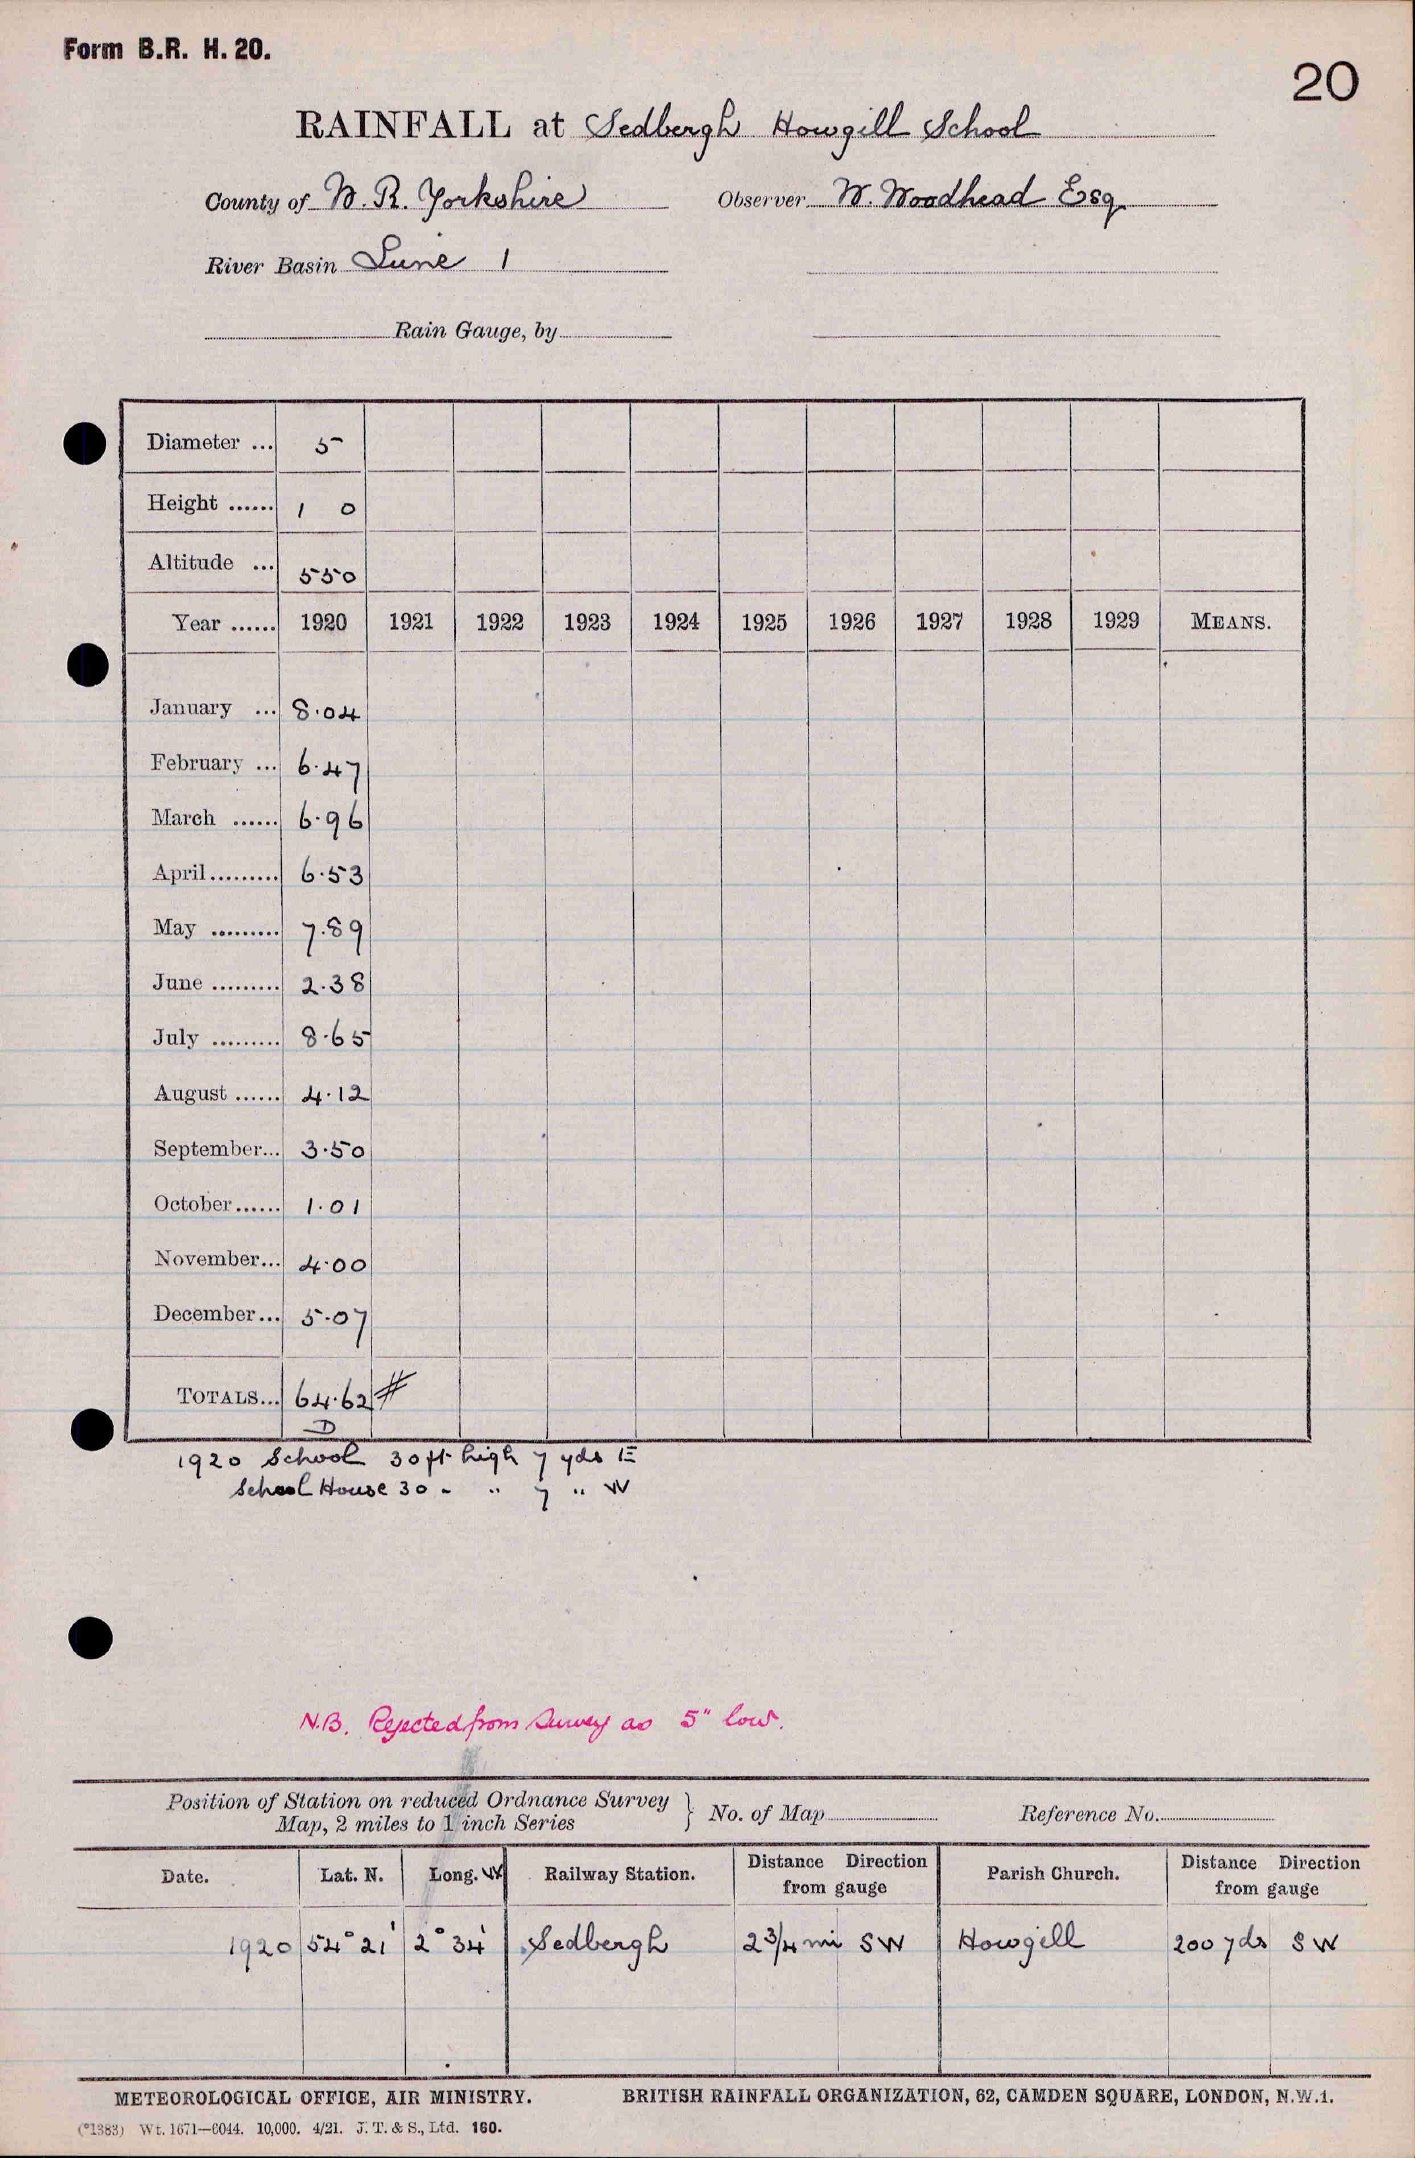 Form B.R. H. 20.
20
RAINFALL at Sedbergh Howgill School
County of W. R. Yorkshire Observer W. Woodhead Esq
River Basin Lune 1
Rain Gauge, by
Diameter ... 5
Height ...... 1 0
Altitude ... 550
Year ...... 1920 1921 1922 1923 1924 1925 1926 1927 1928 1929 MEANS.
January ... 8.04
February ... 6.47
March ...... 6.96
April ......... 6.53
May ......... 7.89
June ......... 2.38
July ......... 8.65
August ...... 4.12
September... 3.50
October ...... 1.01
November... 4.00
December... 5.07
TOTALS... 64.62 #
D
1920 School 30 ft high 7 yds E
School House 30 - " 7 " W
N.B. Rejected from Survey as 5" low.
Position of Station on reduced Ordnance Survey } No. of Map Reference No.
Map, 2 miles to 1 inch Series
Date. Lat. N. Long. W Railway Station. Distance Direction from gauge Parish Church. Distance Direction from gauge
1920 54° 21' 2° 34' Sedbergh 2 3/4 mi SW Howgill 200 yds SW
METEOROLOGICAL OFFICE, AIR MINISTRY. BRITISH RAINFALL ORGANIZATION, 62, CAMDEN SQUARE, LONDON, N.W.1.
(*1383) Wt. 1671—6044. 10,000. 4/21. J. T. & S., Ltd. 160.